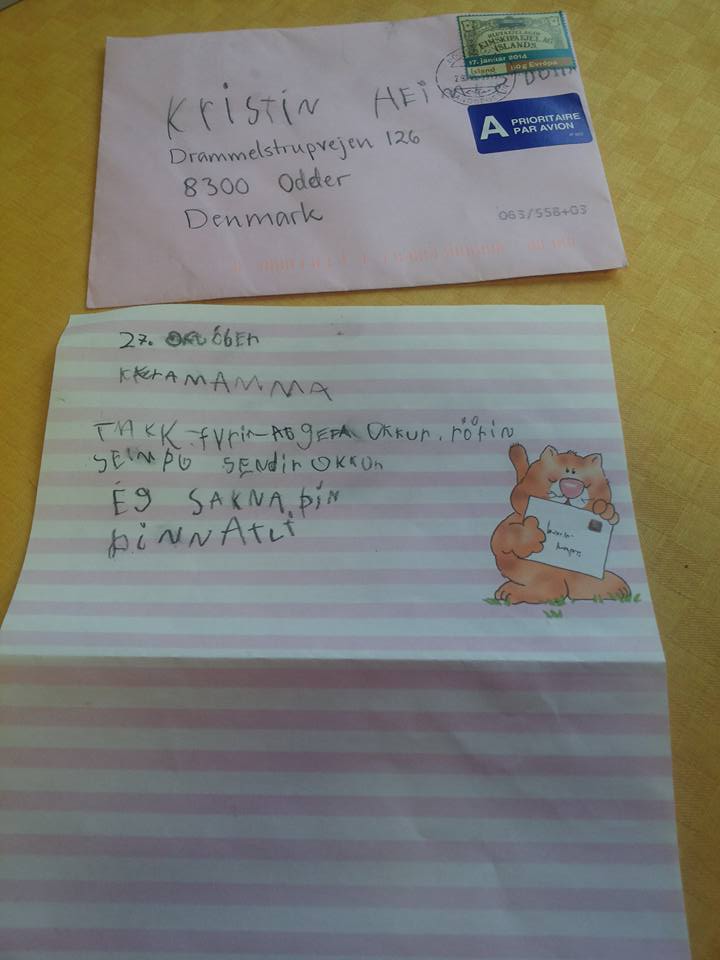 EIMSKIPAFJELAG
ÍSLANDS
17. janúar 2014
Ísland 50g Evrópa
Kristin HEi
A PRIORITAIRE
PAR AVION
Drammelstrupvejen 126
8300 Odder
Denmark
063/558+03
27. óber
MAMMA
TAKK fyrir AÐ gEFA OKKUR. röFin
SEIM ÞÚ SENDIR OKKUR
ÉG SAKNA ÞiN
ÞiNN ATLi